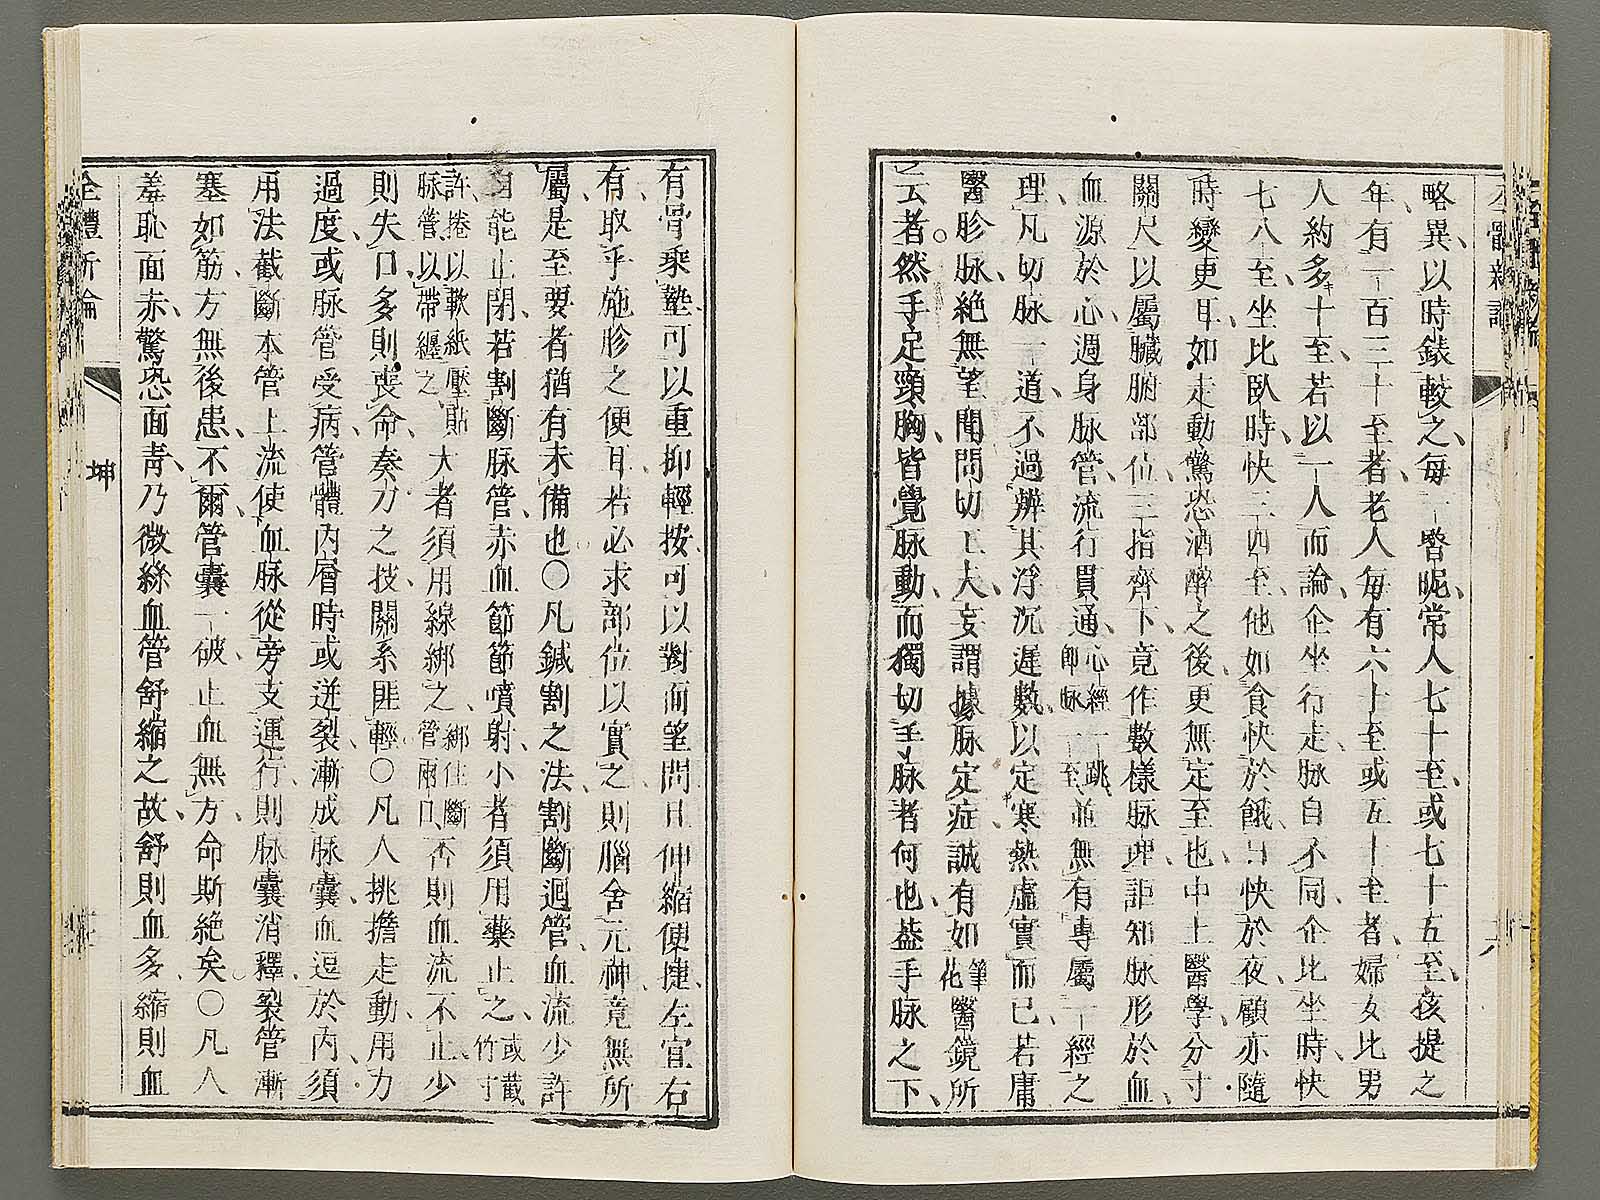 略異以時錶較之每一瞥眤常人七十至或七十五至孩提之
年有一百三十至者老人每有六十至或五十至者婦女比男
人約多十至若以一人而論企坐行走脉自不同企比坐時快
七八至坐比臥時快三四至他如食快於餓日快於夜顧亦隨
時變更耳如走動驚恐酒醉之後更無定至也中土醫學分寸
關尺以屬臟腑部位三指齊下竟作數樣脉理詎知脉形於血
血源於心週身脉管流行貫通心經一跳即脉一至並無有專屬一經之
理凡切脉一道不過辨其浮沉遲數以定寒熱虛實而已若庸
醫胗脉絶無望聞問切工夫妄謂據脉定症誠有如筆花醫鏡所
云者然手足頸胸皆覺脉動而獨切手脉者何也葢手脉之下
有骨乘墊可以重抑輕按可以對面望問且伸縮便捷左宜右
有取乎施胗之便耳若必求部位以實之則腦舍元神竟無所
屬是至要者猶有未備也○凡鍼割之法割斷迴管血流少許
自能止閉若割斷脉管赤血節節噴射小者須用藥止之或截竹寸
許捲以軟紙壓貼脉管以帶纏之大者須用線綁之綁住斷管兩口否則血流不止少
則失口多則喪命奏刀之技關系匪輕○凡人挑擔走動用力
過度或脉管受病管體內層時或迸裂漸成脉囊血逗於內須
用法截斷本管上流使血脉從旁支運行則脉囊消釋裂管漸
塞如筋方無後患不爾管囊一破止血無方命斯絶矣○凡人
羞恥面赤驚恐面青乃微絲血管舒縮之故舒則血多縮則血
全體新論
坤